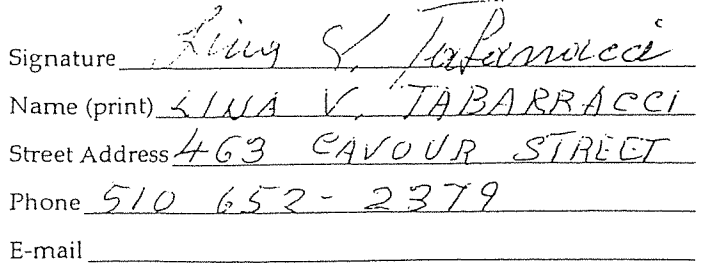 Signature Lina V. Tabarracci
Name (print) LINA V. TABARRACCI
Street Address 463 CAVOUR STREET
Phone 510 652-2379
E-mail